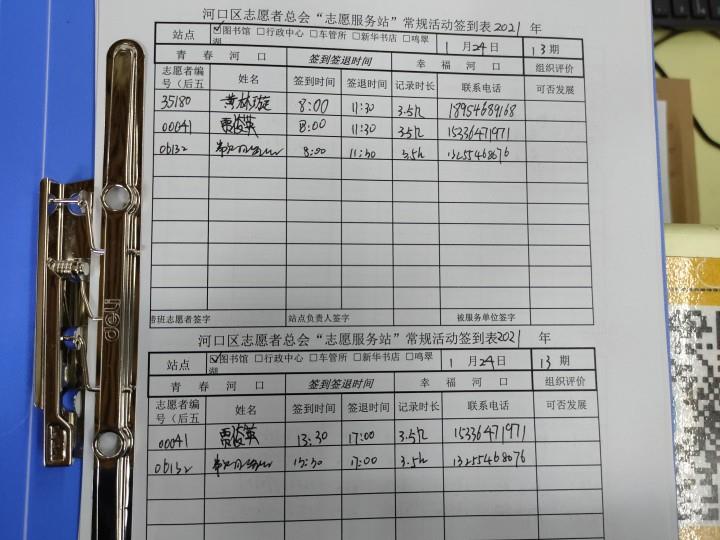 河口区志愿者总会“志愿服务站”常规活动签到表2021 年
站点 ☑图书馆 □行政中心 □车管所 □新华书店 □鸣翠湖 1 月24日 13期
青 春 河 口 签到签退时间 幸 福 河 口 组织评价
志愿者编号（后五 姓名 签到时间 签退时间 记录时长 联系电话 可否发展
35180 黄林璇 8:00 11:30 3.5h 18954689168
00041 贾俊英 8:00 11:30 3.5h 15336471971
06132 8:00 11:30 3.5h 13255468076
带班志愿者签字 站点负责人签字 被服务单位签字
河口区志愿者总会“志愿服务站”常规活动签到表2021 年
站点 ☑图书馆 □行政中心 □车管所 □新华书店 □鸣翠湖 1 月24日 13 期
青 春 河 口 签到签退时间 幸 福 河 口 组织评价
志愿者编号（后五 姓名 签到时间 签退时间 记录时长 联系电话 可否发展
00041 贾俊英 13:30 17:00 3.5h 15336471971
06132 13:30 17:00 3.5h 13255468076
deli